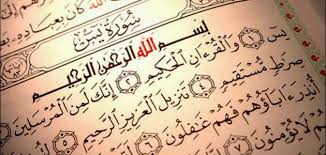 ٱللَّهَ كَانَ بِعِبَادِهِ
سُورَةُ يسٓ
بِسْمِ ٱللَّهِ ٱلرَّحْمَٰنِ ٱلرَّحِيمِ
يسٓ ١ وَٱلْقُرْءَانِ ٱلْحَكِيمِ ٢ إِنَّكَ لَمِنَ ٱلْمُرْسَلِينَ
صِرَٰطٍ مُّسْتَقِيمٍ ٤ تَنزِيلَ ٱلْعَزِيزِ ٱلرَّحِيمِ ٥
أُنذِرَ ءَابَآؤُهُمْ فَهُمْ غَٰفِلُونَ ٦
لَا يُؤْمِنُونَ